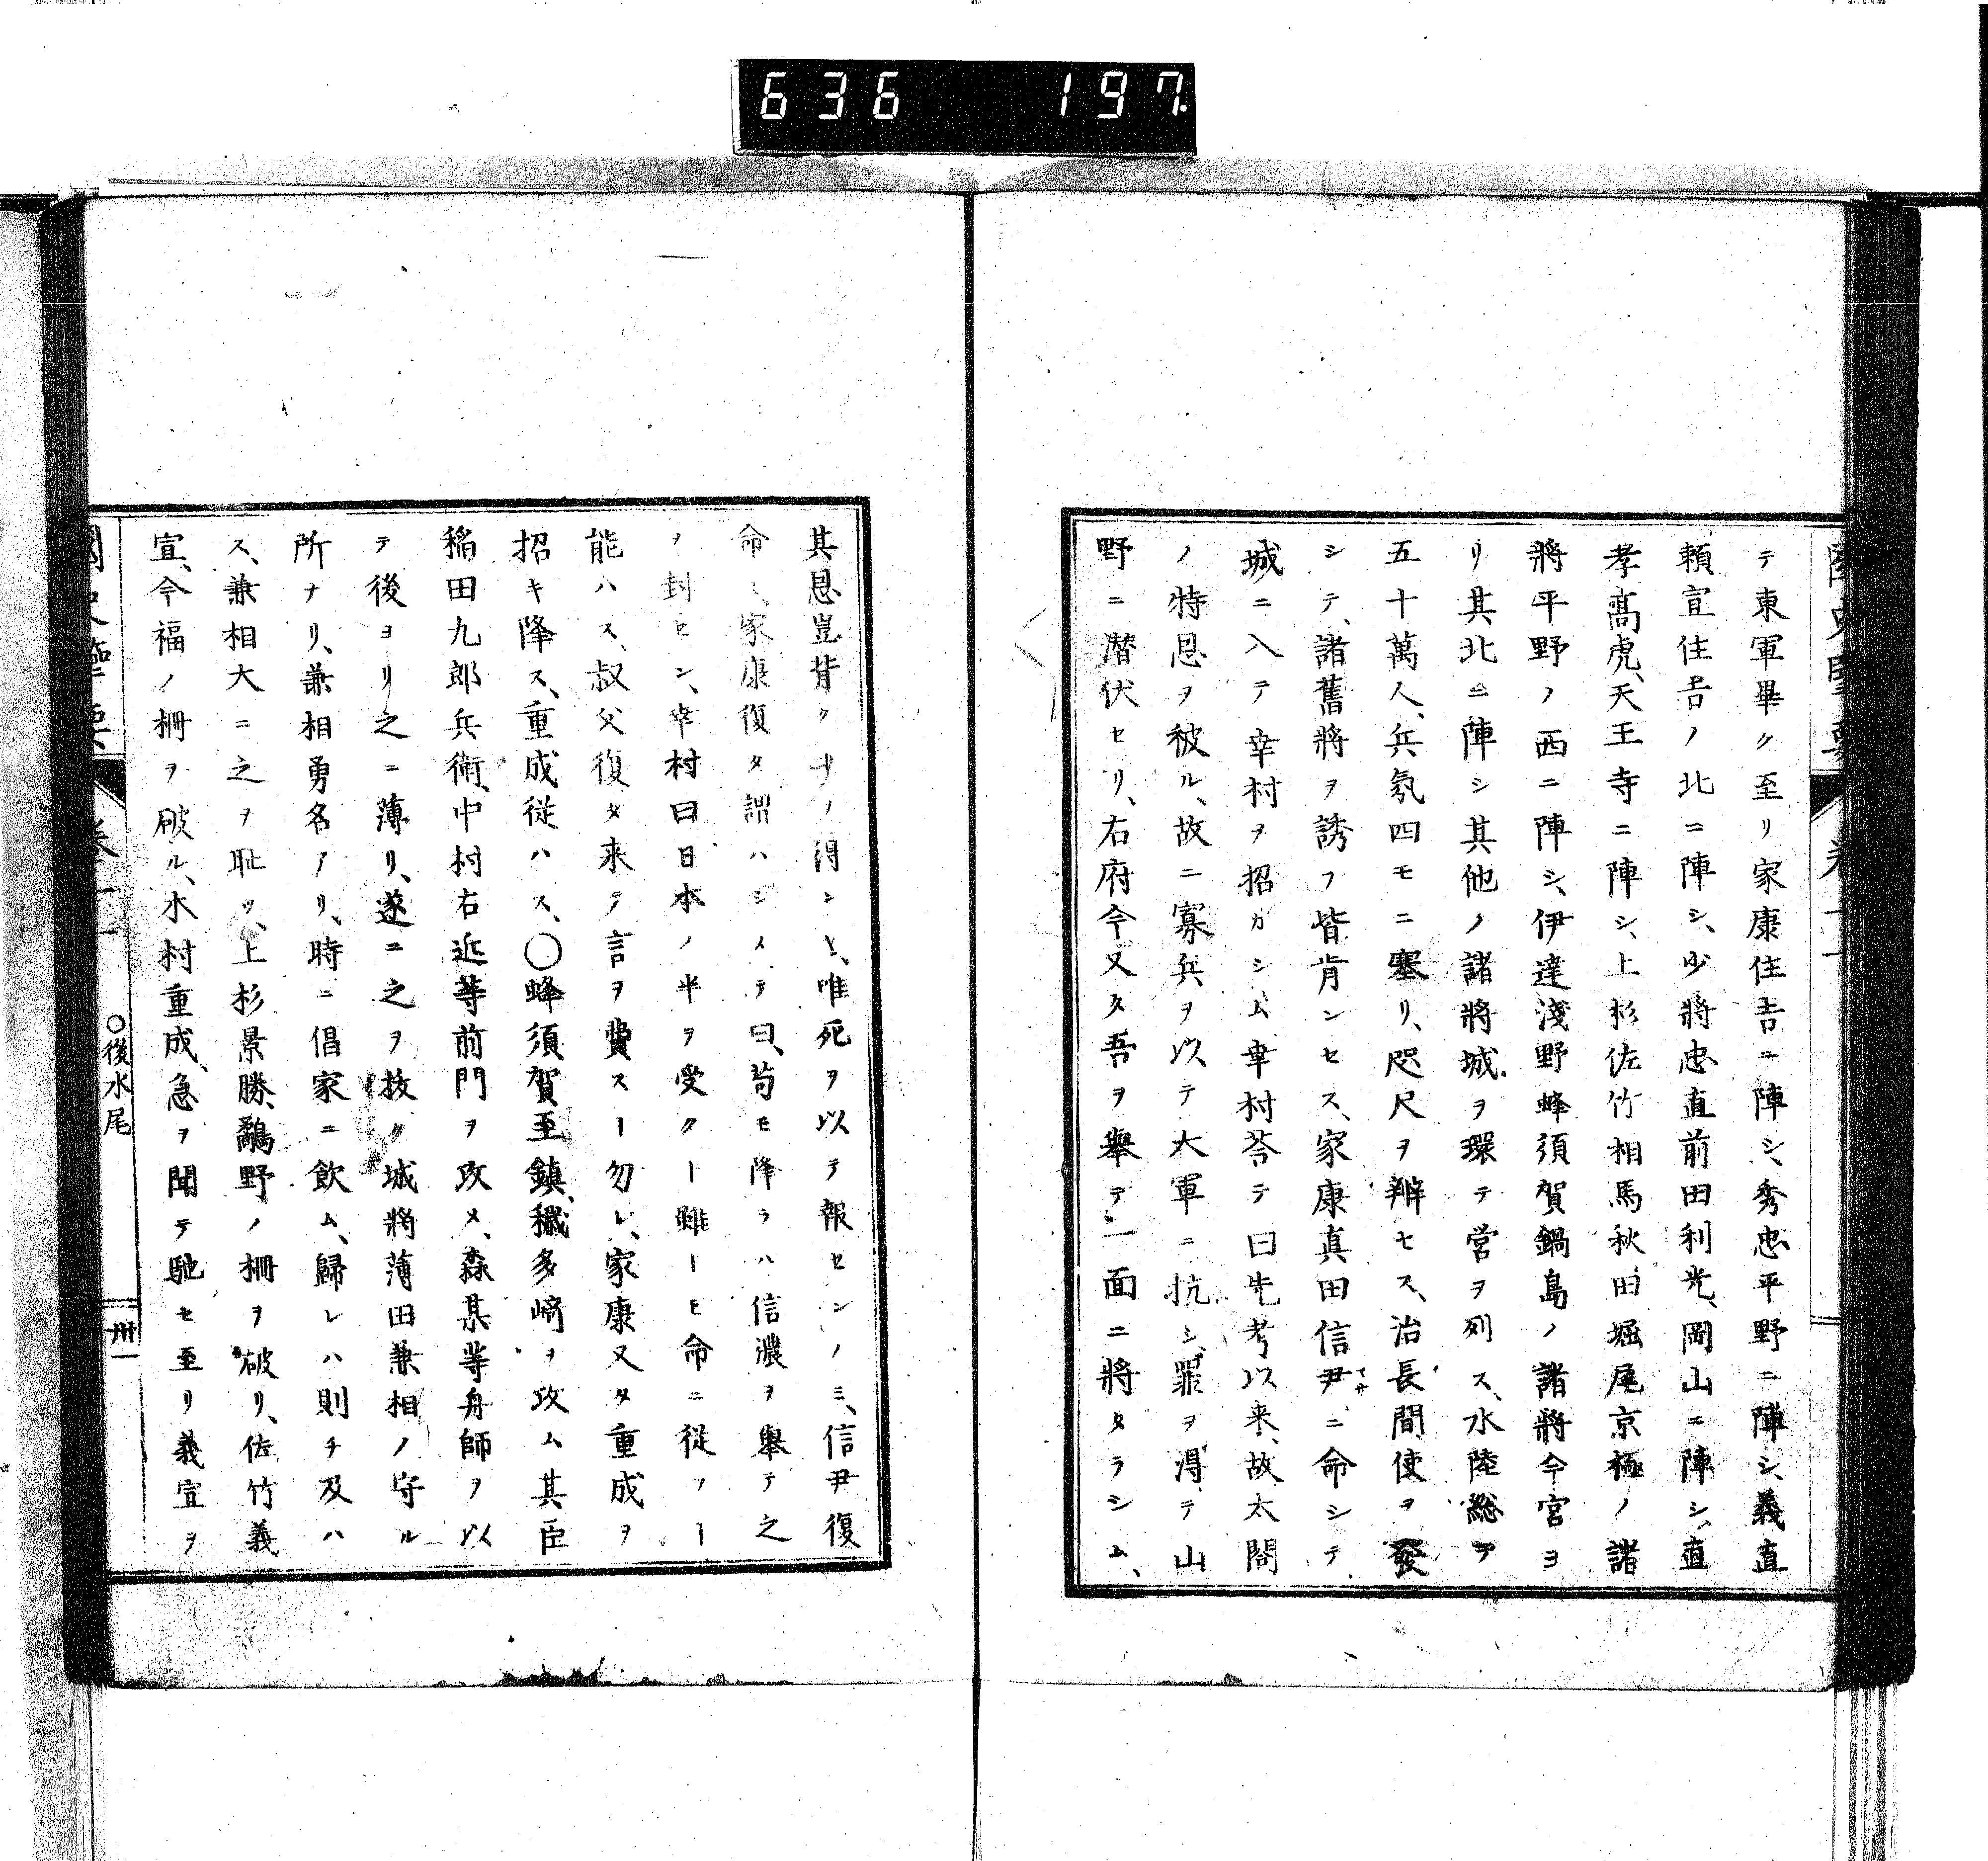 636 197
テ東軍畢ク至リ家康住吉ニ陣シ、秀忠平野ニ陣シ、義直
頼宣住吉ノ北ニ陣シ、少將忠直前田利光、岡山ニ陣シ、直
孝高虎、天王寺ニ陣シ、上杉佐竹相馬秋田堀尾京極ノ諸
將平野ノ西ニ陣シ、伊達淺野蜂須賀鍋島ノ諸將今宮ヨ
リ其北ニ陣シ其他ノ諸將城ヲ環テ営ヲ列ス、水陸総テ
五十萬人、兵氛四モニ塞リ、咫尺ヲ辨セス、治長間使ヲ發
シテ、諸舊將ヲ誘フ皆肯ンセス、家康真田信尹ニ命シテ
城ニ入テ幸村ヲ招カシム幸村荅テ曰先考以来、故太閤
ノ特恩ヲ被ル、故ニ寡兵ヲ以テ大軍ニ抗シ、罪ヲ得テ山
野ニ潜伏セリ、右府今又タ吾ヲ擧テ一面ニ將タラシム、
其恩豈背クヿノ得ンヤ、唯死ヲ以テ報センノミ、信尹復
命ス、家康復タ謂ハシメテ曰、苟モ降ラハ信濃ヲ擧テ之
ヲ封セン、幸村曰日本ノ半ヲ受クヿ雖ヿモ命ニ從フヿ
能ハス、叔父復タ来テ言ヲ費スヿ勿レ、家康又タ重成ヲ
招キ降ス、重成従ハス、〇蜂須賀至鎮、穢多﨑ヲ攻ム其臣
稲田九郎兵衛、中村右近等前門ヲ攻メ、森某等舟師ヲ以
テ後ヨリ之ニ薄リ、遂ニ之ヲ抜ク城將薄田兼相ノ守ル
所ナリ、兼相勇名アリ、時ニ倡家ニ飲ム、歸レハ則チ及ハ
ス、兼相大ニ之ヲ耻ツ、上杉景勝、鷸野ノ柵ヲ破リ、佐竹義
宣、今福ノ柵ヲ破ル、木村重成、急ヲ聞テ馳セ至リ義宣ヲ
〇後水尾
卅一